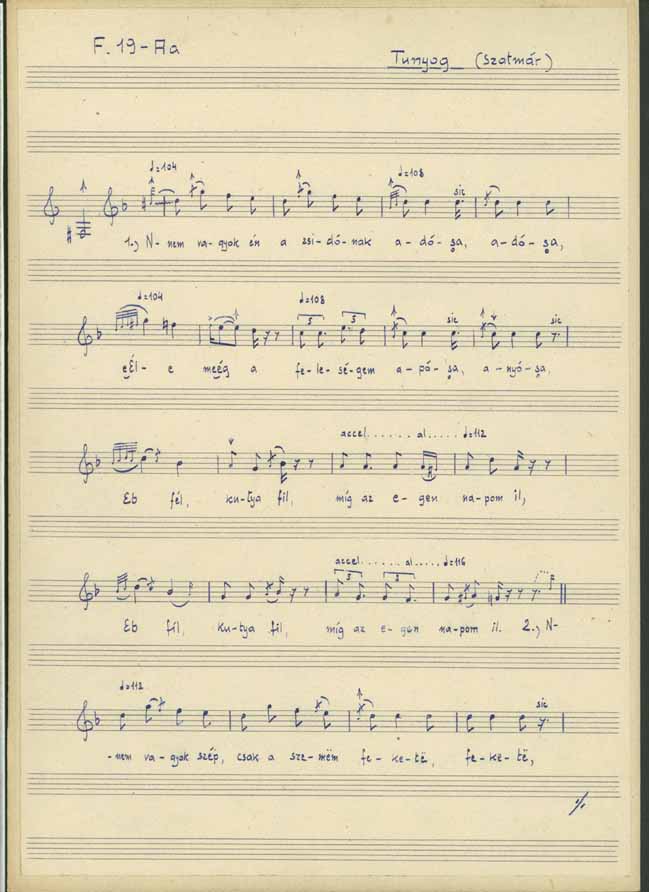 F. 19-Aa
Tunyog (Szatmár)
♩=104 ♩=108 sic
1., N- nem va-gyok én a zsi-dó-nak a-dó-sa, a-dó-sa,
♩=104 ♩=108 sic sic
3 3
eÉl-e meég a fe-le-sé-gem a-pó-sa, a-nyó-sa,
accel....... al..... ♩=112
Eb fél, ku-tya fil, míg az e-gen na-pom il,
accel....... al..... ♩=116
3 3
Eb fíl, ku-tya fil, míg az e-gen na-pom il. 2., N-
♩=112 sic
-nem va-gyok szép, csak a sze-mëm fe-ke-të, fe-ke-të,
·/·